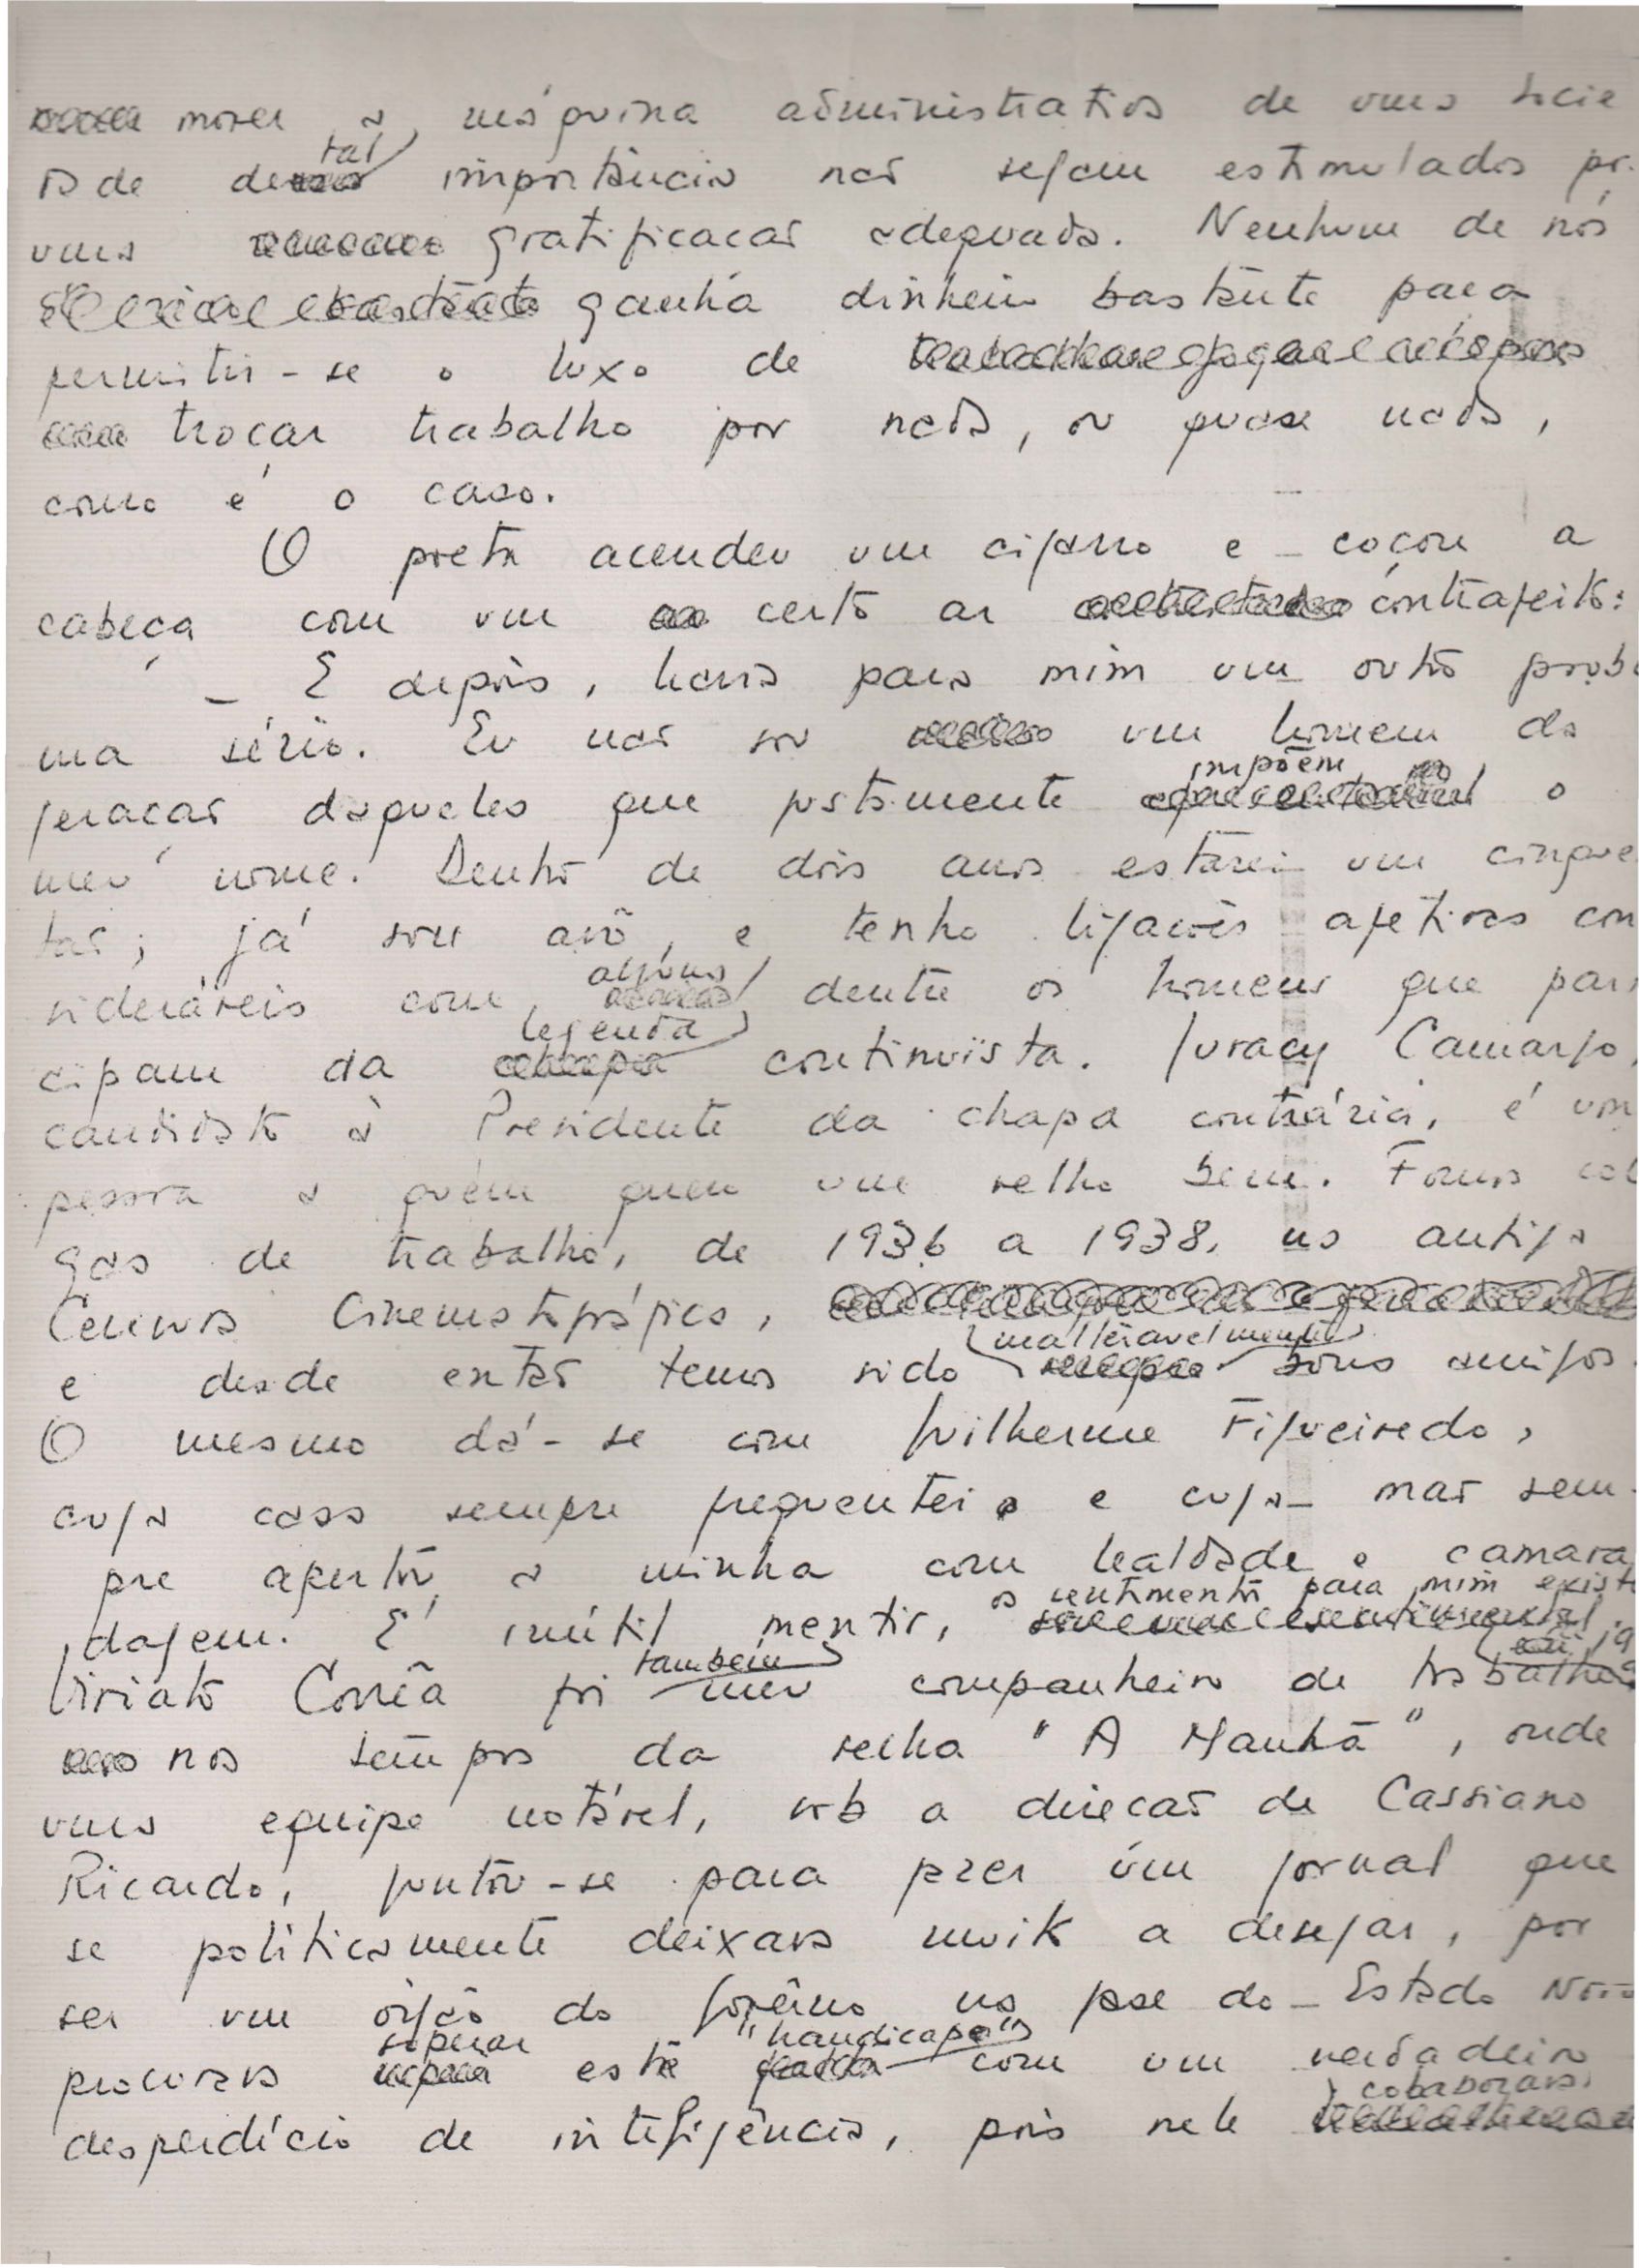 mover a máquina administrativa de uma socie
dade de tal importância não sejam estimulados por
uma gratificação adequada. Nenhum de nós
ganha dinheiro bastante para
permitir-se o luxo de
trocar trabalho por nada, ou quase nada,
como é o caso.
O poeta acendeu um cigarro e coçou a
cabeça com um certo ar contrafeito:
_ E depois, havia para mim um outro proble
ma sério. Eu não sou um homem da
geração daqueles que justamente impõem o
meu nome. Dentro de dois anos estarei um cinqüen
tão; já sou avô, e tenho ligações afetivas con
sideráveis com alguns dentre os homens que parti
cipam da legenda continuísta. Juracy Camargo,
candidato a Presidente da chapa contrária, é uma
pessoa a quem quero um velho bem. Fomos cole
gas de trabalho, de 1936 a 1938, na antiga
Censura Cinematográfica,
e desde então temos sido inalteravelmente bons amigos.
O mesmo dá-se com Guilherme Figueiredo,
cuja casa sempre freqüentei e cuja mão sem-
pre apertou a minha com lealdade e camara
dagem. É inútil mentir, os sentimentos para mim existem.
Viriato Corrêa foi também meu companheiro de trabalho já
nos tempos da velha "A Manhã", onde
uma equipe notável, sob a direção de Cassiano
Ricardo, juntou-se para fazer um jornal que
se politicamente deixava muito a desejar, por
ser um órgão do Govêrno na fase do Estado Novo
procurava superar este "handicape" com um verdadeiro
desperdício de inteligência, pois nele colaboravam